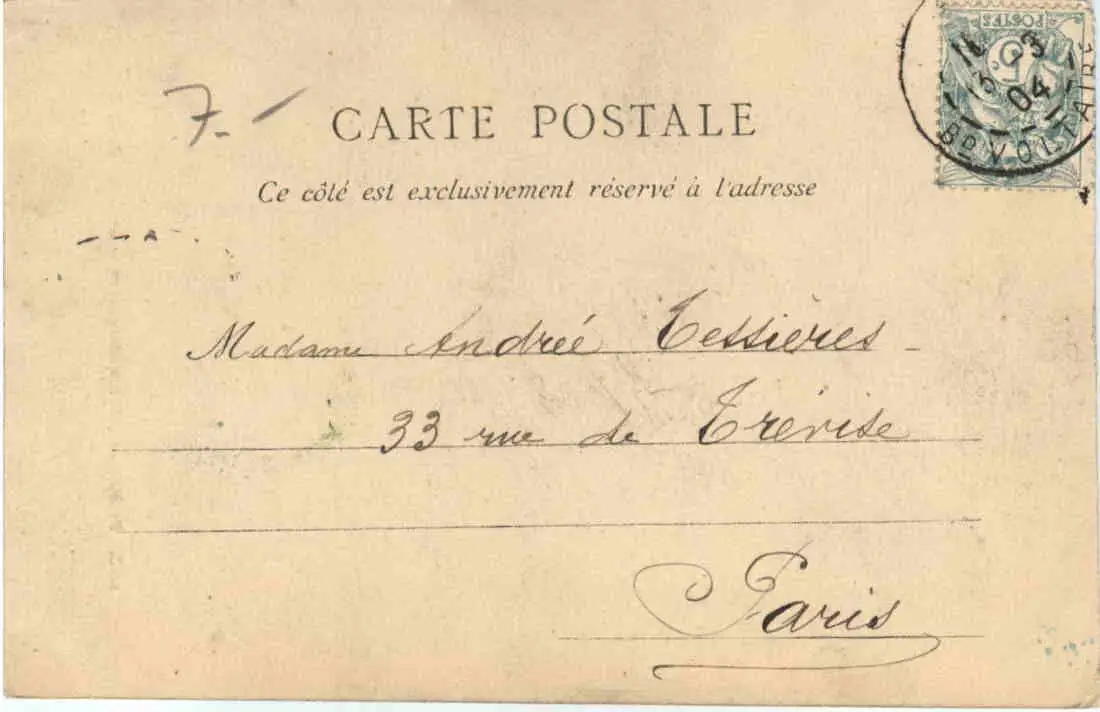 POSTES
5
3
04
BD VOLTAIRE
7-
CARTE POSTALE
Ce côté est exclusivement réservé à l'adresse
Madame Andrée Tessières
33 rue de Trévise
Paris